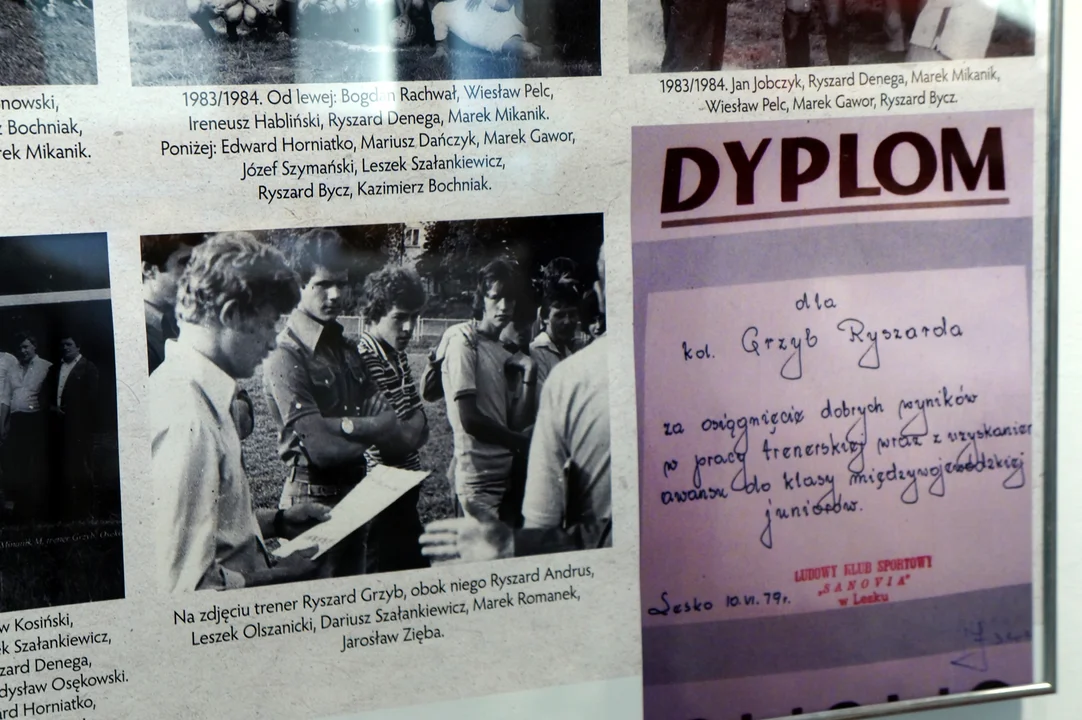 nowski,
Bochniak,
rek Mikanik.
1983/1984. Od lewej: Bogdan Rachwał, Wiesław Pelc,
Ireneusz Habliński, Ryszard Denega, Marek Mikanik.
Poniżej: Edward Horniatko, Mariusz Dańczyk, Marek Gawor,
Józef Szymański, Leszek Szałankiewicz,
Ryszard Bycz, Kazimierz Bochniak.
1983/1984. Jan Jobczyk, Ryszard Denega, Marek Mikanik,
Wiesław Pelc, Marek Gawor, Ryszard Bycz.
Mikanik M, trener Grzyb,
w Kosiński,
k Szałankiewicz,
zard Denega,
dysław Osękowski.
ard Horniatko,
Na zdjęciu trener Ryszard Grzyb, obok niego Ryszard Andrus,
Leszek Olszanicki, Dariusz Szałankiewicz, Marek Romanek,
Jarosław Zięba.
DYPLOM
dla
kol. Grzyb Ryszarda
za osiągnięcie dobrych wyników
w pracy trenerskiej wraz z uzyskaniem
awansu do klasy międzywojewódzkiej
juniorów.
LUDOWY KLUB SPORTOWY
„SANOVIA"
w Lesku
Lesko 10.VI.79r.